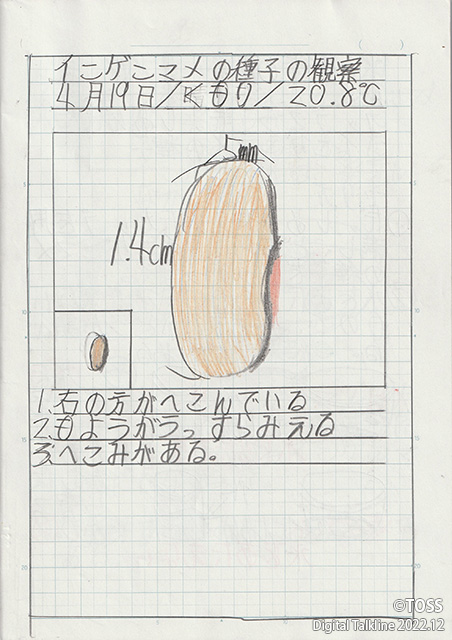 インゲンマメの種子の観察
4月19日/くもり/20.8℃
5mm
1.4cm
1.右の方がへこんでいる
2.もようがうっすらみえる
3.へこみがある。
©TOSS
Digital Talkline 2022.12